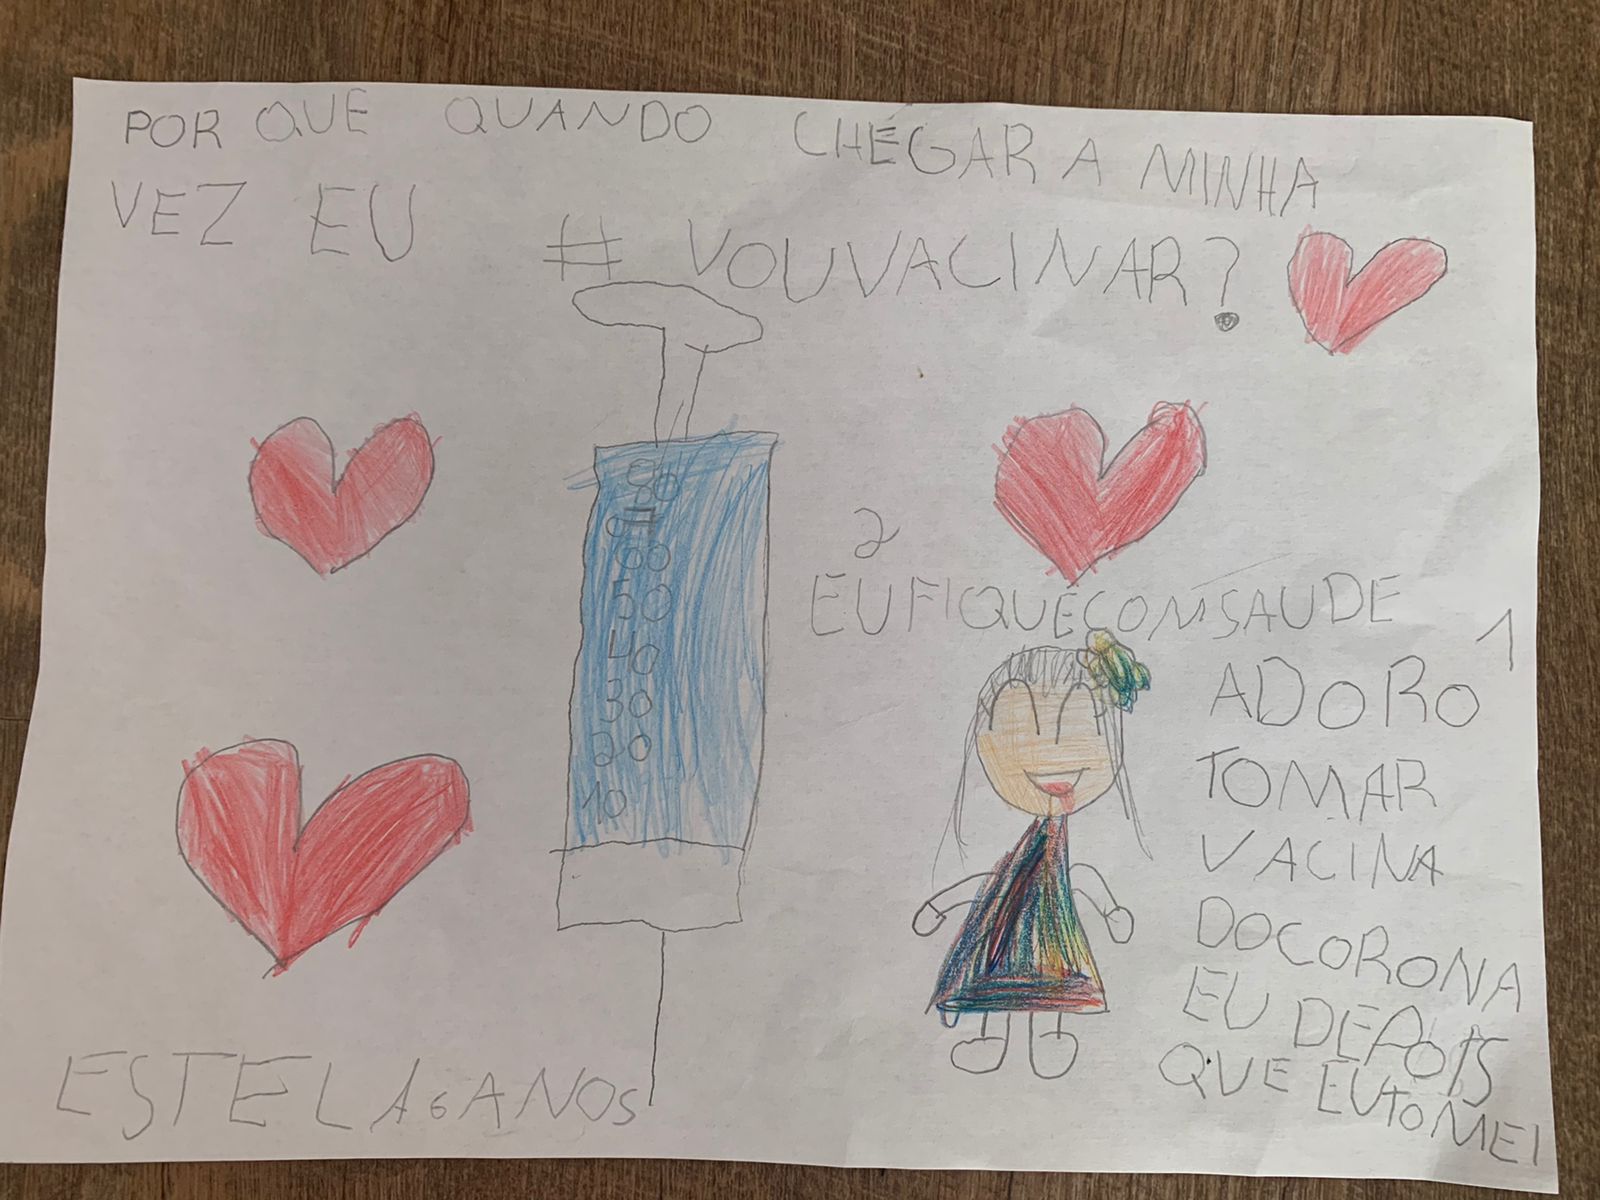 POR QUE QUANDO CHEGAR A MINHA
VEZ EU # VOUVACINAR?
80
60
50
40
30
20
10
2
EU FIQUÉ COM SAUDE
1
ADORO
TOMAR
VACINA
DO CORONA
EU DEPOIS
QUE EU TOMEI
ESTELA 6 ANOS